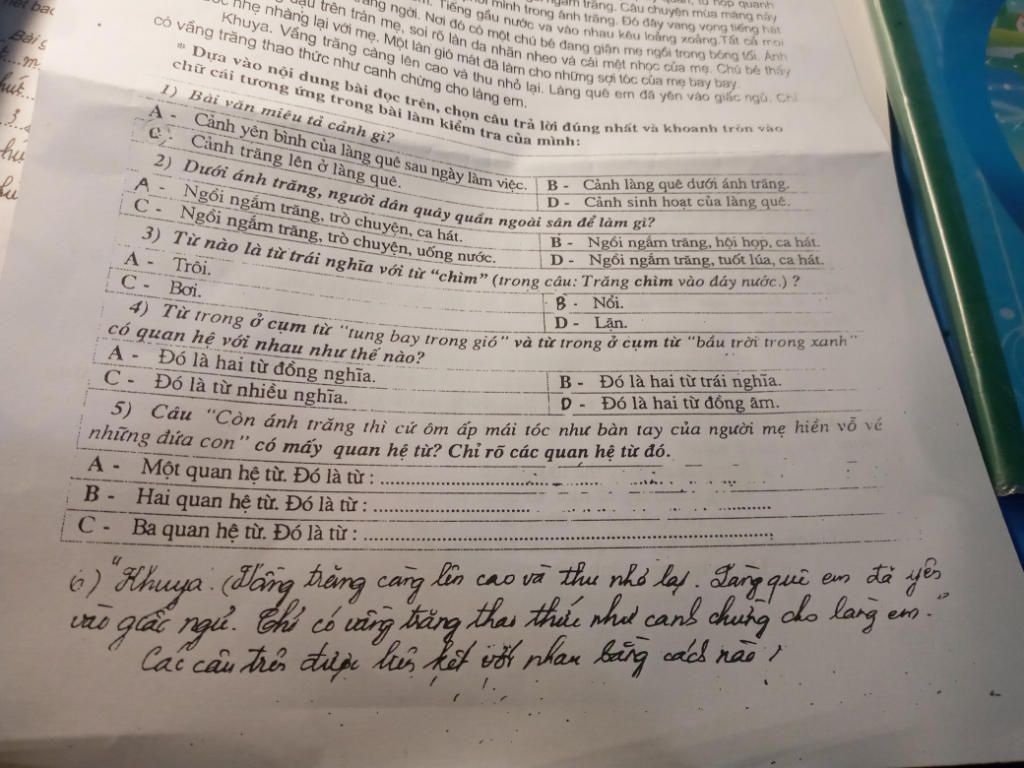 ngắm trăng. Câu chuyện mùa màng này
mình trong ánh trăng. Đó đây vang vọng tiếng hát
trăng ngời. Nơi đó có một chú bé đang giận mẹ ngồi trong bóng tối. Ánh
Tiếng gầu nước va vào nhau kêu loảng xoảng. Tất cả mọi
đậu trên trán mẹ, soi rõ làn da nhăn nheo và cái mệt nhọc của mẹ. Chú bé thấy
nhẹ nhàng lại với mẹ. Một làn gió mát đã làm cho những sợi tóc của mẹ bay bay.
Khuya. Vầng trăng càng lên cao và thu nhỏ lại. Làng quê em đã yên vào giấc ngủ. Chỉ
có vầng trăng thao thức như canh chừng cho làng em.
* Dựa vào nội dung bài đọc trên, chọn câu trả lời đúng nhất và khoanh tròn vào
chữ cái tương ứng trong bài làm kiểm tra của mình:
1) Bài văn miêu tả cảnh gì?
A - Cảnh yên bình của làng quê sau ngày làm việc. B - Cảnh làng quê dưới ánh trăng.
C - Cảnh trăng lên ở làng quê. D - Cảnh sinh hoạt của làng quê.
2) Dưới ánh trăng, người dân quây quần ngoài sân để làm gì?
A - Ngồi ngắm trăng, trò chuyện, ca hát. B - Ngồi ngắm trăng, hội họp, ca hát.
C - Ngồi ngắm trăng, trò chuyện, uống nước. D - Ngồi ngắm trăng, tuốt lúa, ca hát.
3) Từ nào là từ trái nghĩa với từ "chìm" (trong câu: Trăng chìm vào đáy nước.) ?
A - Trôi. B - Nổi.
C - Bơi. D - Lặn.
4) Từ trong ở cụm từ "tung bay trong gió" và từ trong ở cụm từ "bầu trời trong xanh"
có quan hệ với nhau như thế nào?
A - Đó là hai từ đồng nghĩa. B - Đó là hai từ trái nghĩa.
C - Đó là từ nhiều nghĩa. D - Đó là hai từ đồng âm.
5) Câu "Còn ánh trăng thì cứ ôm ấp mái tóc như bàn tay của người mẹ hiền vỗ về
những đứa con" có mấy quan hệ từ? Chỉ rõ các quan hệ từ đó.
A - Một quan hệ từ. Đó là từ :
B - Hai quan hệ từ. Đó là từ :
C - Ba quan hệ từ. Đó là từ :
6) "Khuya. Vầng trăng càng lên cao và thu nhỏ lại. Làng quê em đã yên
vào giấc ngủ. Chỉ có vầng trăng thao thức như canh chừng cho làng em."
Các câu trên được liên kết với nhau bằng cách nào ?